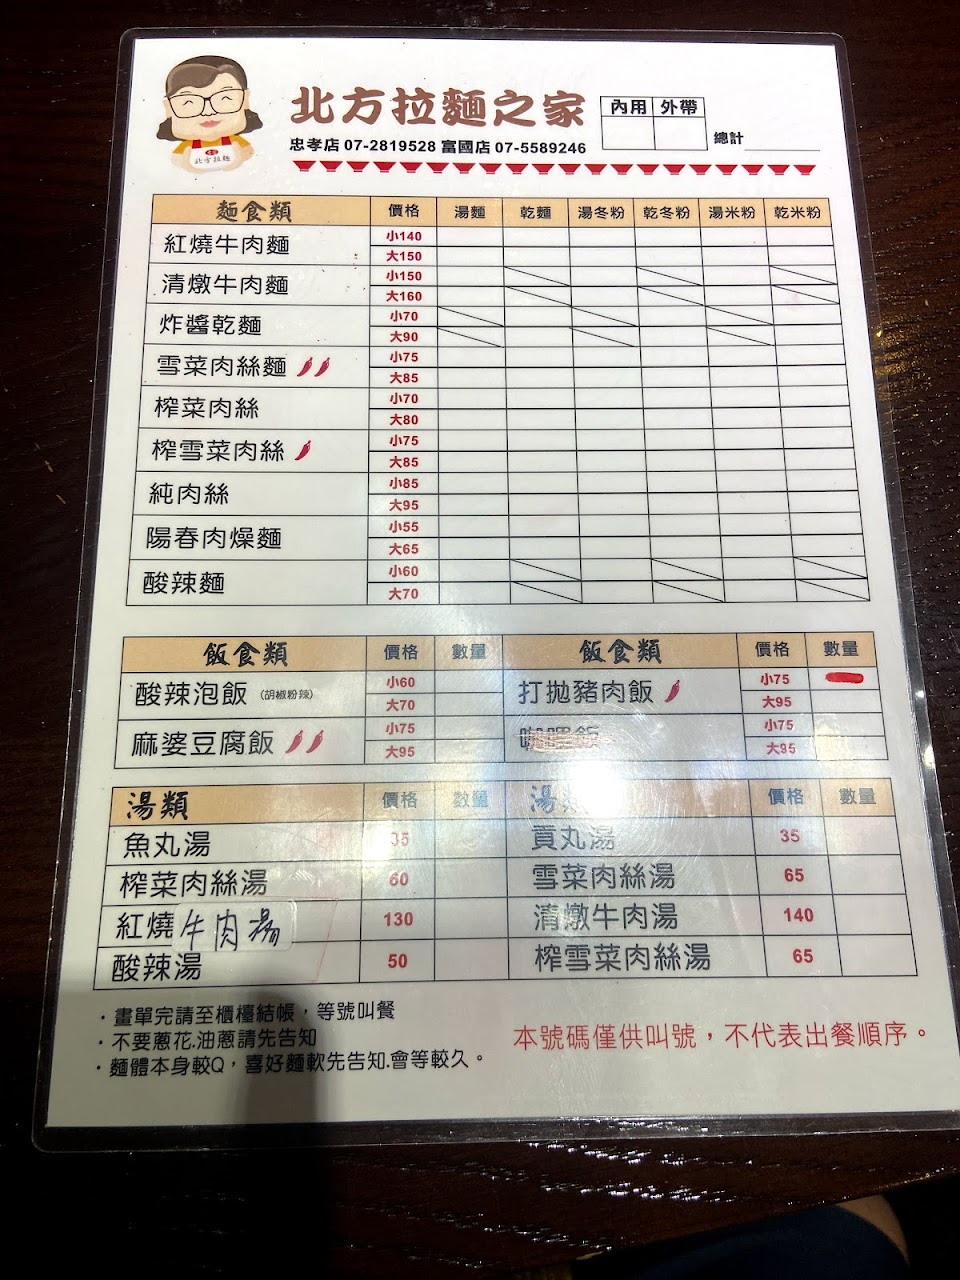 北方拉麵之家
北方拉麵
忠孝店 07-2819528 富國店 07-5589246
內用 外帶
總計
麵食類 價格 湯麵 乾麵 湯冬粉 乾冬粉 湯米粉 乾米粉
紅燒牛肉麵 小140
大150
清燉牛肉麵 小150
大160
炸醬乾麵 小70
大90
雪菜肉絲麵 小75
大85
榨菜肉絲 小70
大80
榨雪菜肉絲 小75
大85
純肉絲 小85
大95
陽春肉燥麵 小55
大65
酸辣麵 小60
大70
飯食類 價格 數量 飯食類 價格 數量
酸辣泡飯 (胡椒粉辣) 小60 打拋豬肉飯 小75
大70 大95
麻婆豆腐飯 小75 咖哩飯 小75
大95 大95
湯類 價格 數量 湯類 價格 數量
魚丸湯 35 貢丸湯 35
榨菜肉絲湯 60 雪菜肉絲湯 65
紅燒牛肉湯 130 清燉牛肉湯 140
酸辣湯 50 榨雪菜肉絲湯 65
・畫單完請至櫃檯結帳，等號叫餐
・不要蔥花.油蔥請先告知
・麵體本身較Q，喜好麵軟先告知.會等較久。
本號碼僅供叫號，不代表出餐順序。